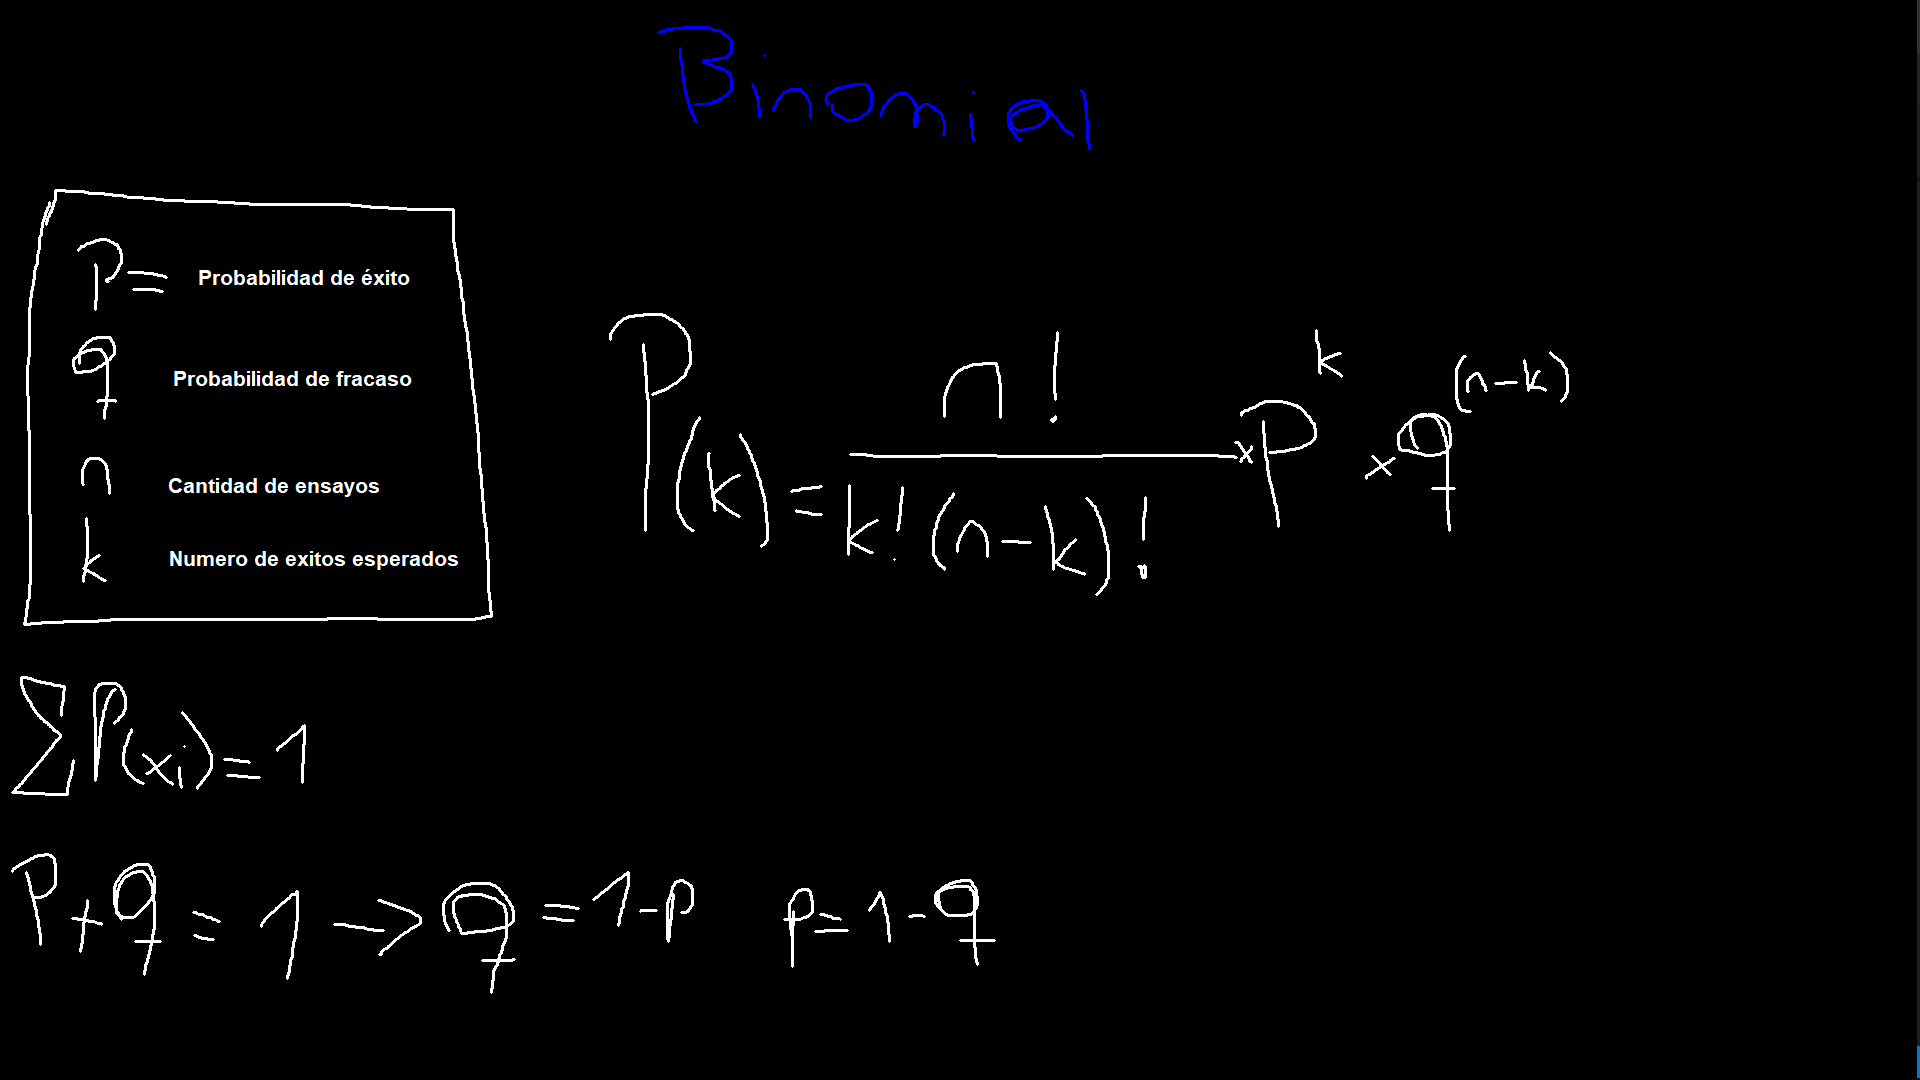 Binomial
P= Probabilidad de éxito
q Probabilidad de fracaso
n Cantidad de ensayos
k Numero de exitos esperados
P(k) = n! / k!(n-k)! × P^k × q^(n-k)
∑P(xi) = 1
P+q = 1 → q = 1-p p = 1-q